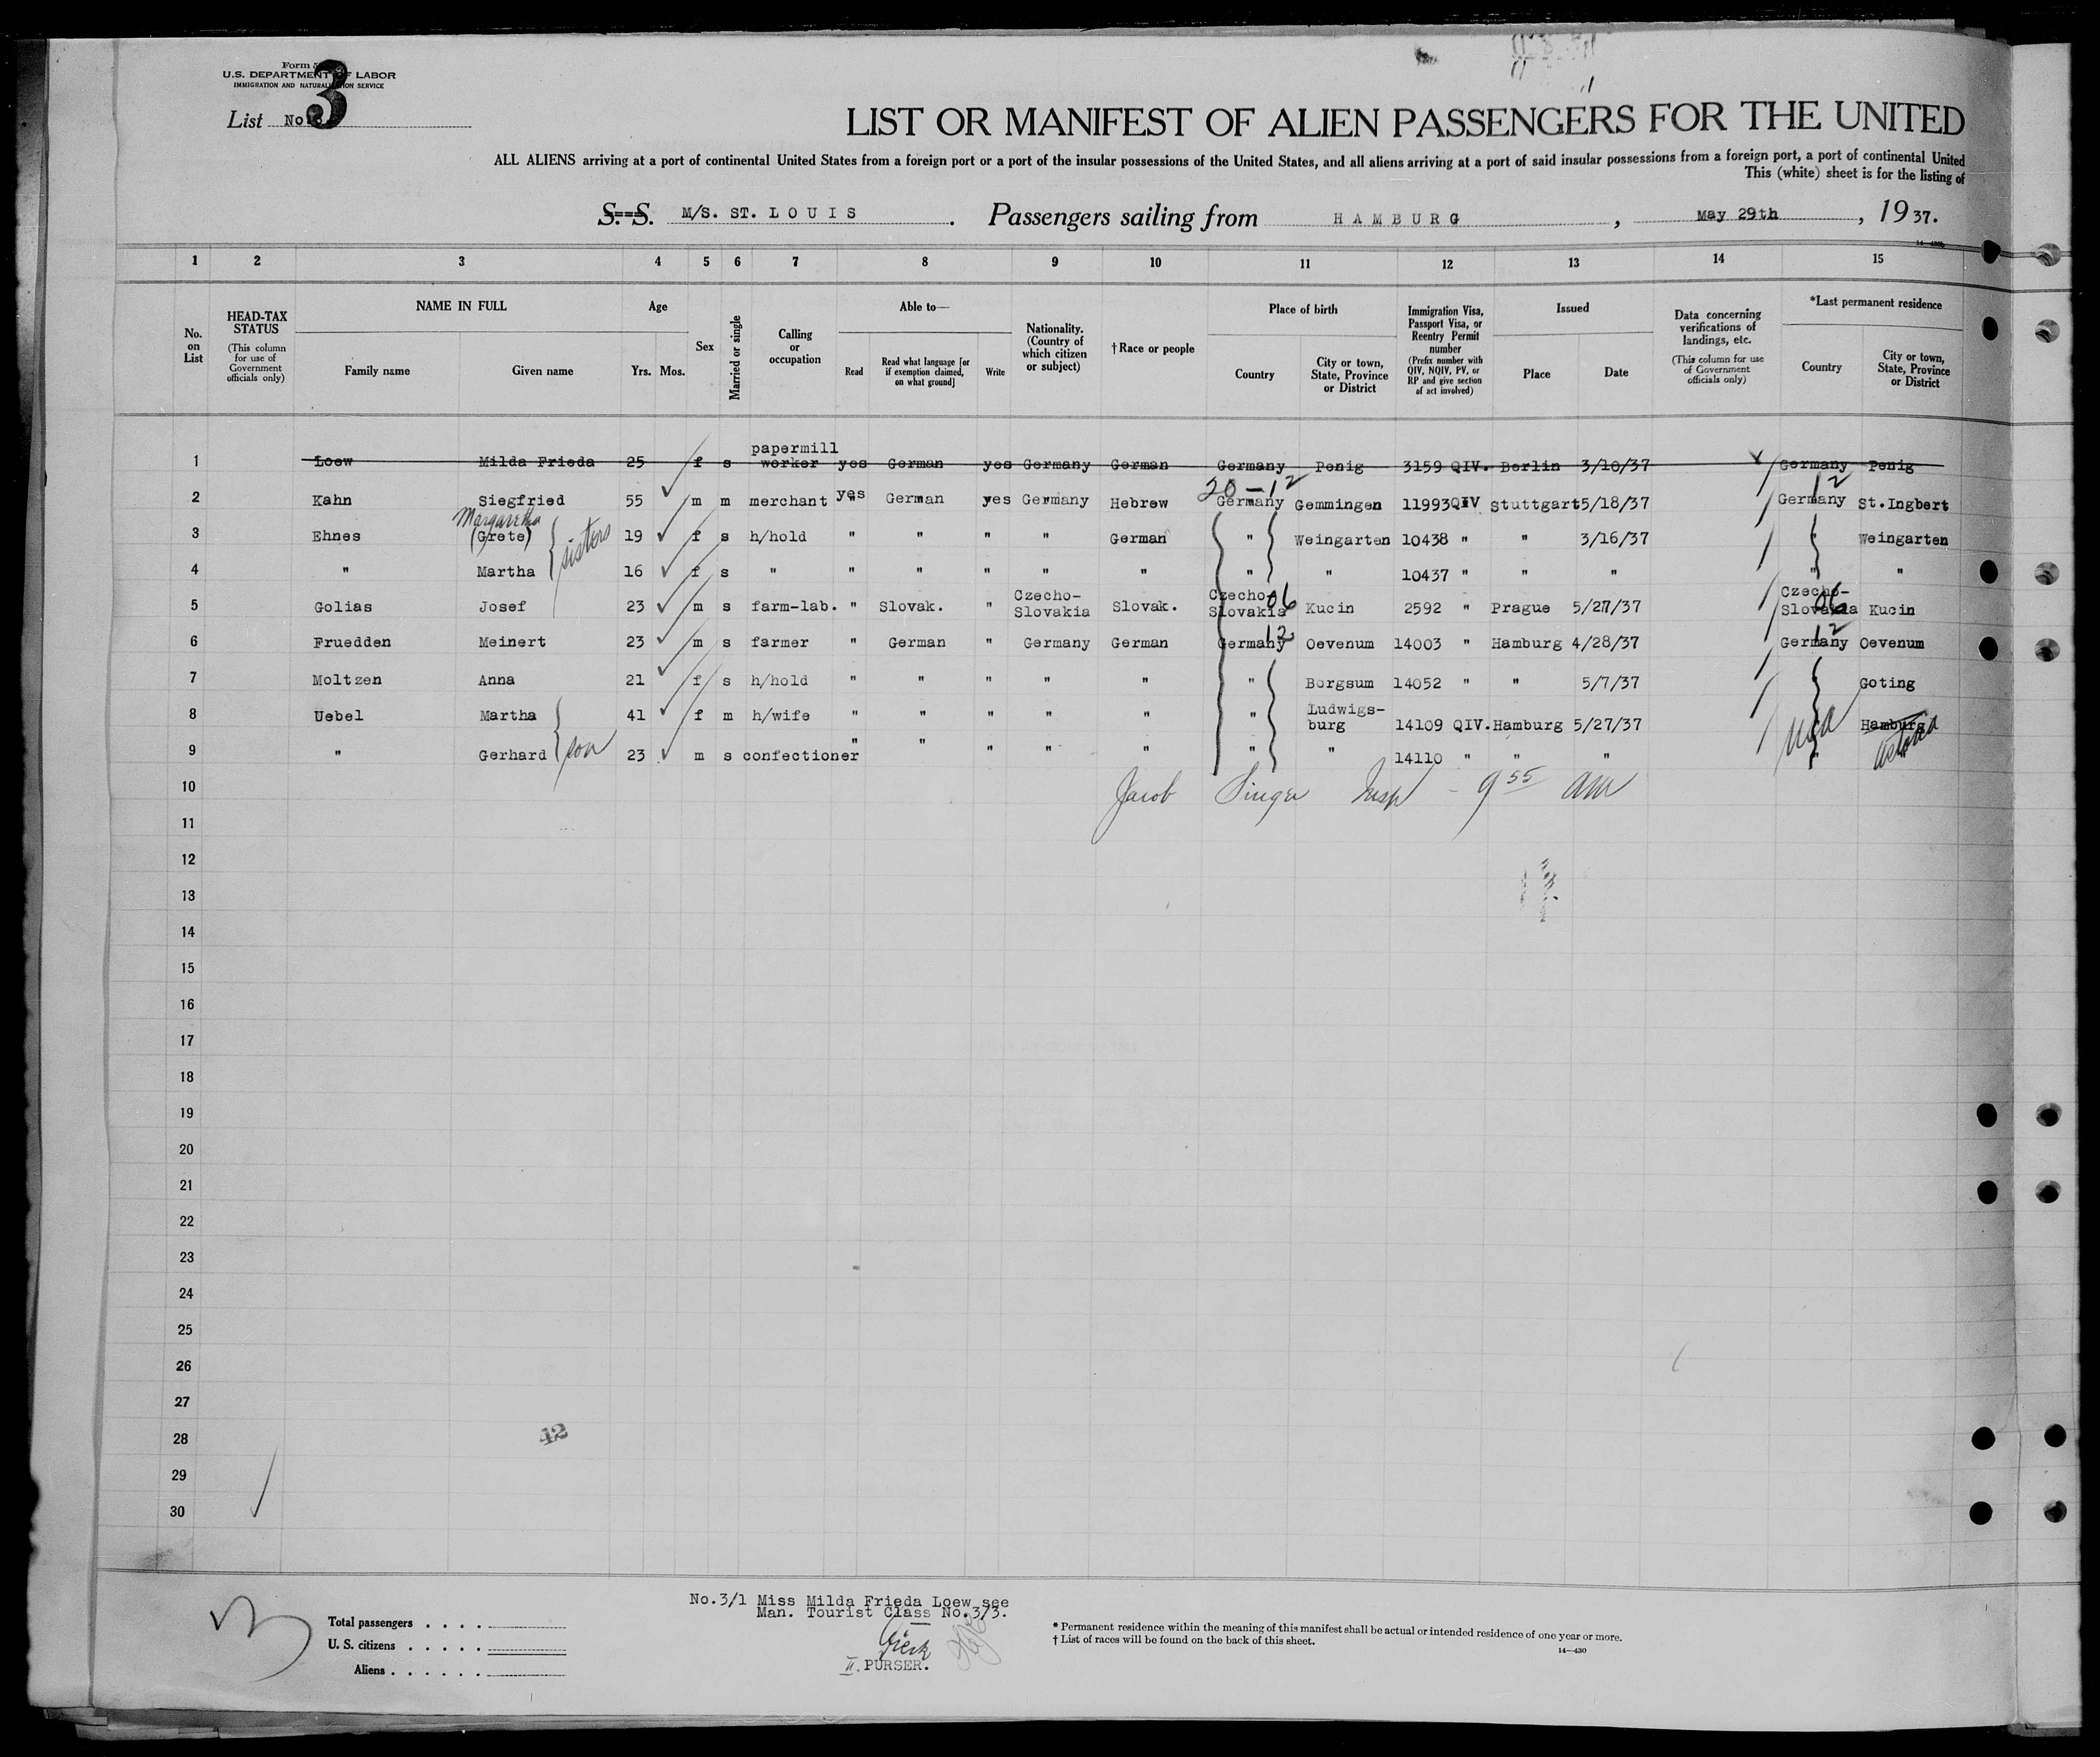 U.S. DEPARTMENT OF LABOR
IMMIGRATION AND NATURALIZATION SERVICE
3
List No.
LIST OR MANIFEST OF ALIEN PASSENGERS FOR THE UNITED
ALL ALIENS arriving at a port of continental United States from a foreign port or a port of the insular possessions of the United States, and all aliens arriving at a port of said insular possessions from a foreign port, a port of continental United
This (white) sheet is for the listing of
S. S. M/S. ST. LOUIS. Passengers sailing from HAMBURG, May 29th, 1937.
1 2 3 4 5 6 7 8 9 10 11 12 13 14 15
No. on List
HEAD-TAX STATUS (This column for use of Government officials only)
NAME IN FULL Family name Given name
Age Yrs. Mos.
Sex
Married or single
Calling or occupation
Able to— Read Read what language [or if exemption claimed, on what ground] Write
Nationality. (Country of which citizen or subject)
†Race or people
Place of birth Country City or town, State, Province or District
Immigration Visa, Passport Visa, or Reentry Permit number (Prefix number with QIV, NQIV, PV, or RP and give section of act involved)
Issued Place Date
Data concerning verifications of landings, etc. (This column for use of Government officials only)
*Last permanent residence Country City or town, State, Province or District
1 Loew Milda Frieda 25 f s papermill worker yes German yes Germany German Germany Penig 3159 QIV. Berlin 3/10/37 Germany Penig
20-12 12
2 Kahn Siegfried 55 m m merchant yes German yes Germany Hebrew Germany Gemmingen 11993 QIV Stuttgart 5/18/37 Germany St.Ingbert
Margaretha
3 Ehnes (Grete) sisters 19 f s h/hold " " " " German " Weingarten 10438 " " 3/16/37 " Weingarten
4 " Martha 16 f s " " " " " " " " 10437 " " " " "
5 Golias Josef 23 m s farm-lab. " Slovak. " Czecho-Slovakia Slovak. Czecho-Slovakia 06 Kucin 2592 " Prague 5/27/37 Czecho-Slovakia 06 Kucin
6 Fruedden Meinert 23 m s farmer " German " Germany German Germany 12 Oevenum 14003 " Hamburg 4/28/37 Germany 12 Oevenum
7 Moltzen Anna 21 f s h/hold " " " " " " Borgsum 14052 " " 5/7/37 Goting
8 Uebel Martha 41 f m h/wife " " " " " " Ludwigsburg 14109 QIV. Hamburg 5/27/37 Hamburg
9 " Gerhard son 23 m s confectioner " " " " " " " 14110 " " " " Astoria
10 Jacob Singer Insp - 9 55 am
11
12
13
14
15
16
17
18
19
20
21
22
23
24
25
26
27
28
42
29
30
No.3/1 Miss Milda Frieda Loew see
Man. Tourist Class No.3/3.
II. PURSER.
Total passengers . . . .
U. S. citizens . . . . .
Aliens . . . . . .
* Permanent residence within the meaning of this manifest shall be actual or intended residence of one year or more.
† List of races will be found on the back of this sheet.
14—430